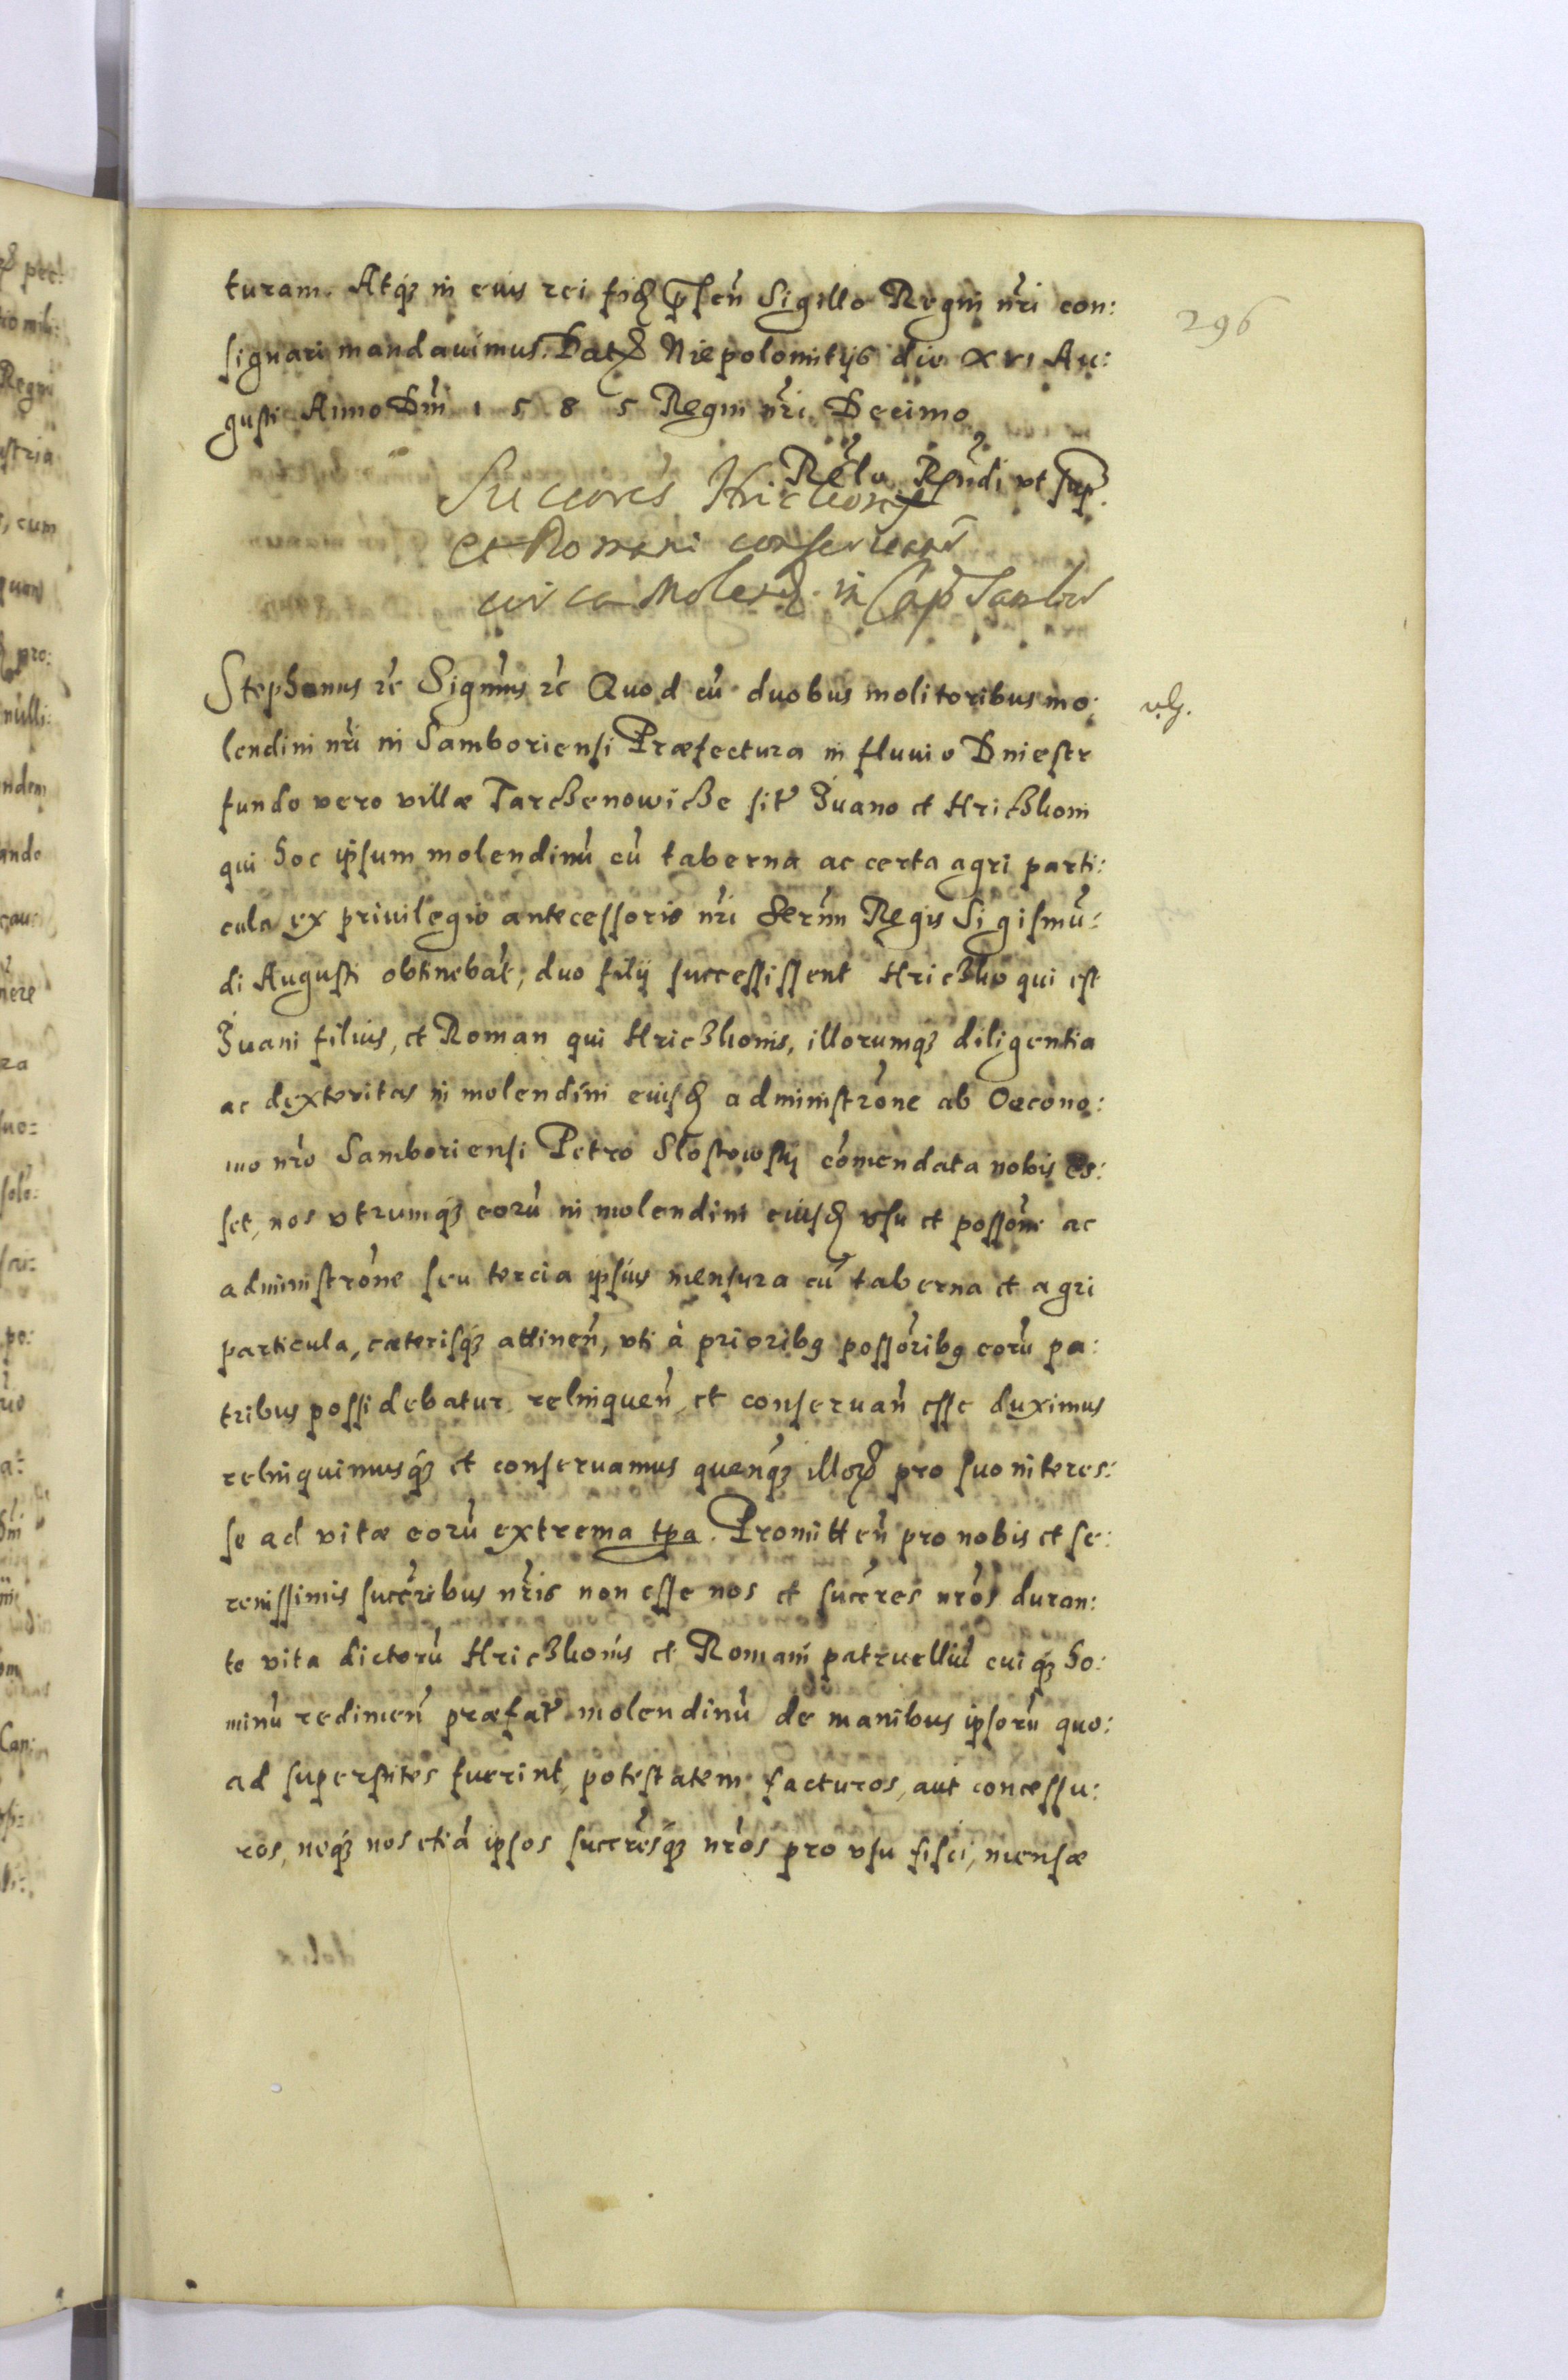 296
turam. Atq₃ in eius rei fid. p̄sen̄ Sigillo Regni nr̄i con:
signari mandauimus. Dat. Niepolomitijs die XVI Au:
gusti Anno Dn̄i 1 5 8 5 Regni nr̄i Decimo
Rel̄o Rn̄di vt sup.
Succores Hriczkonis
et Romani conseruant̄
circa Molend. in Cap. Sambor
Stephanus rc̄ Signm̄us rc̄ Quod cū duobus molitoribus mo:
vlh.
lendini nr̄i in Samboriensi Præfectura in fluuio Dniestr
fundo vero villæ Tarchenowicze sit̄ Iuano et Hriczkoni
qui hoc ipsum molendinū cū taberna ac certa agri parti:
cula ex priuilegio antecessoris nr̄i Serm̄i Regis Sigismū:
di Augusti obtinebāt, duo filij successissent Hriczko qui est
Iuani filius, et Roman qui Hriczkonis, illorumq₃ diligentia
ac dexteritas in molendini eiusd. administrōne ab Oecono:
mo nr̄o Samboriensi Petro Slostowskij cōmendata nobis es:
set, nos vtrumq₃ eorū in molendini eiusd. vsu et possōne ac
administrōne seu tercia ipsius mensura cū taberna et agri
particula, cæterisq₃ attinen̄, vti à prioribq possōribq eorū pa:
tribus possidebatur relinquen̄ et conseruan̄ esse duximus
relinquimusq₃ et conseruamus quenq₃ illor. pro suo interes:
se ad vitæ eorū extrema tpa. Promitten̄ pro nobis et se:
renissimis succ̄ribus nr̄is non esse nos et succ̄res nr̄os duran:
te vita dictorū Hriczkonis et Romani patruelliū cuiq₃ ho:
minū redimen̄ præfat̄ molendinū de manibus ipsorū quo:
ad superstites fuerint, potestatem facturos, aut concessu:
ros, neq₃ nos etiā ipsos succr̄esq₃ nr̄os pro vsu fisci, mensæ